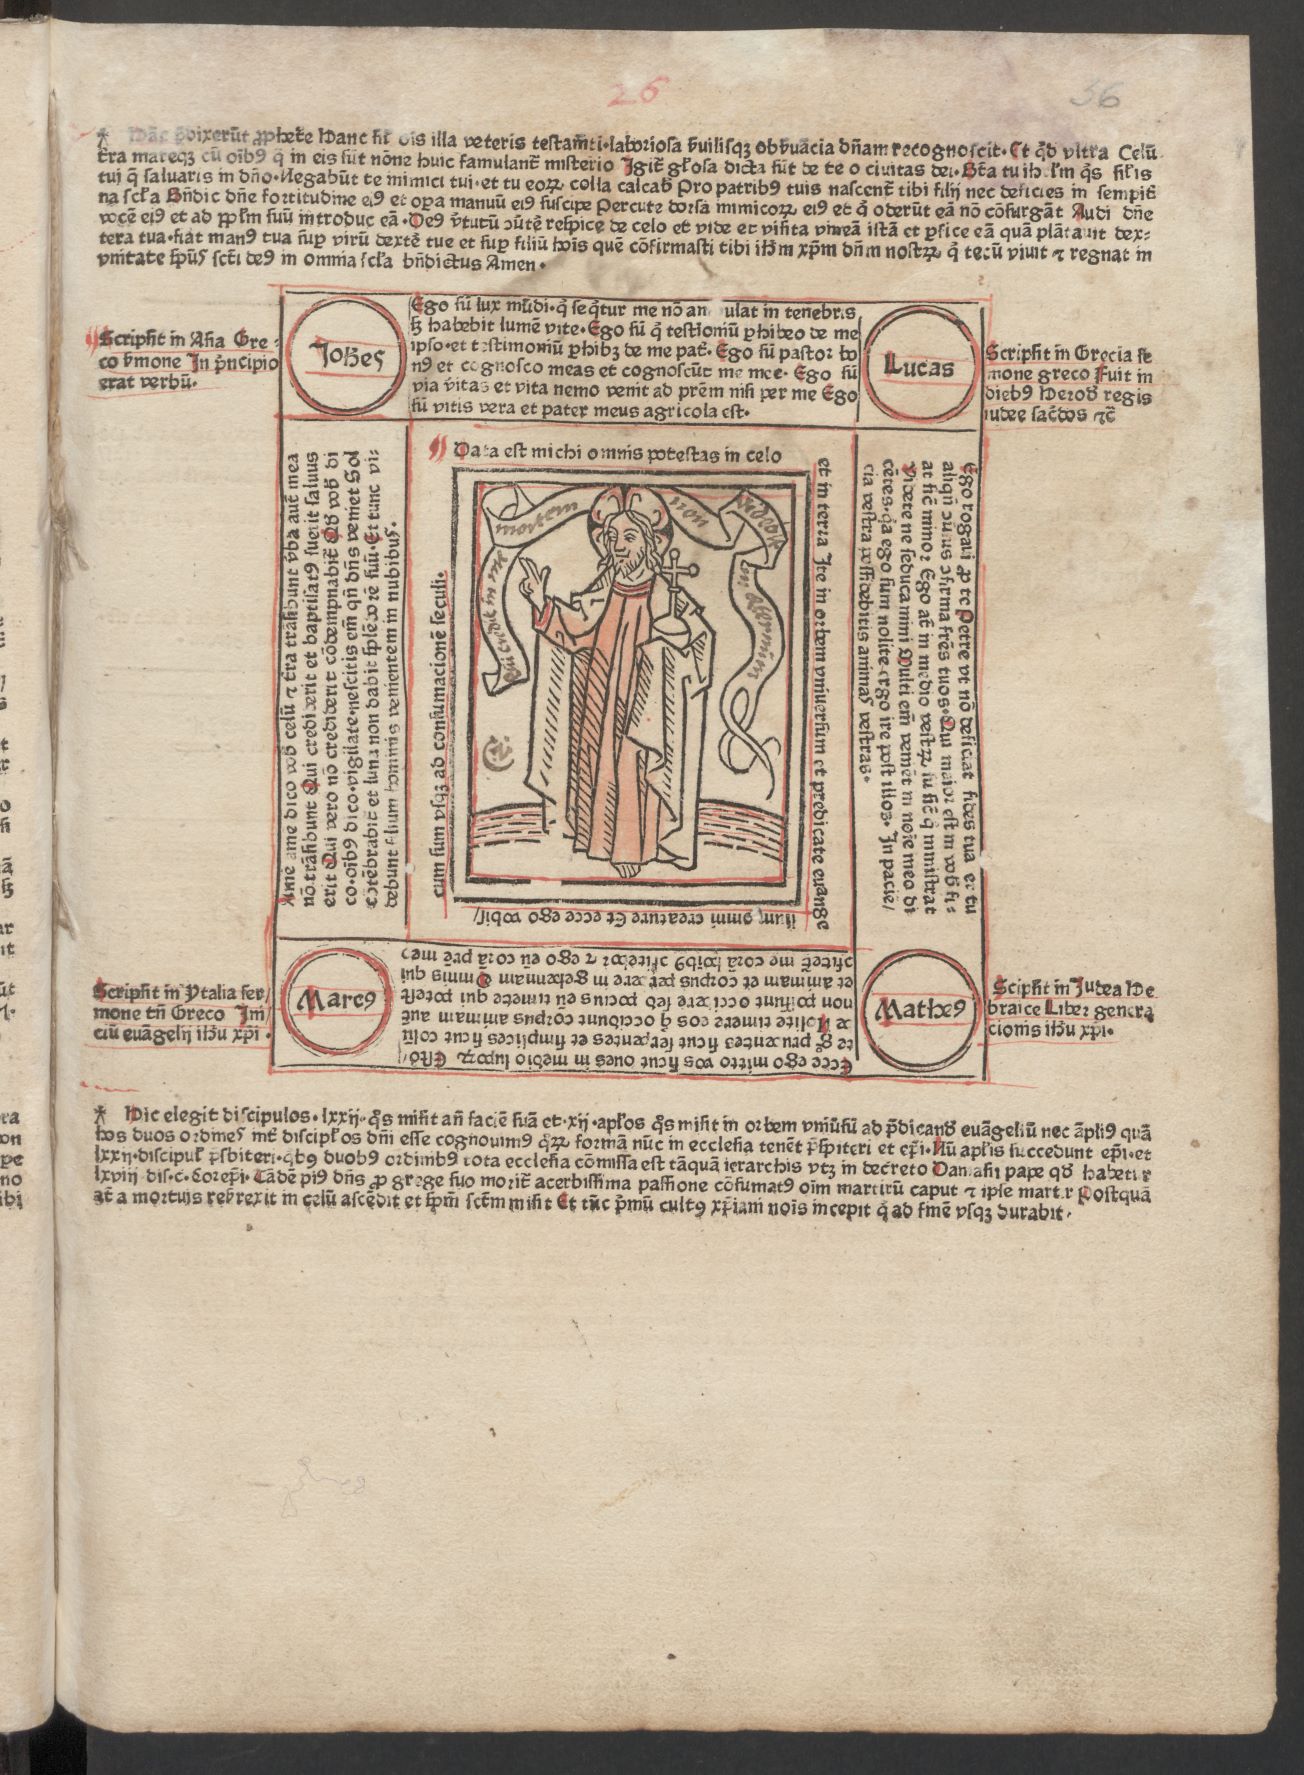 26
36
Hāc p̄dixerūt ꝓphete Hanc fit ois illa veteris testam̄ti·laboriosa ẜuilisqꝫ obẜuācia dn̄am recognoscit· Et qd̄ vltra Celū
tr̄a mareqꝫ cū oībꝰ q̄ in eis sūt nōne huic famulant̄ misterio Igit̄ gl̄osa dicta sūt de te o ciuitas dei·
tui q̄ saluaris in dn̄o·Negabūt te inimici tui·et tu eoꝝ colla calcab̄ Pro patribꝰ tuis nascent̄ tibi filij nec deficies in sempit̄
na scl̄a Bn̄dic dn̄e fortitudine eiꝰ et oꝑa manuū eiꝰ suscipe Percute dorsa inimicoꝝ eiꝰ et q̄ oderūt eā nō cōsurgāt Audi dn̄e
vocē eiꝰ et ad ppl̄m suū introduc eā·Deꝰ v̄tutū ↄūte respice de celo et vide et visita vineā istā et ꝑfice eā quā plātauit dex⸗
tera tua·fiat manꝰ tua suꝑ virū dextē tue et suꝑ filiū hoīs quē cōfirmasti tibi ihm̄ xpm̄ dn̄m nostꝝ q̄ tecū viuit ⁊ regnat in
vnitate sp̄us sct̄i deꝰ in omnia scl̄a bn̄dictus Amen·
Ioh̄es
Ego sū lux mūdi·q̄ seq̄tur me nō an ulat in tenebris
sꝫ habebit lumē vite·Ego sū q̄ testioniū ꝑhibeo de me
ipso·et testimoniū ꝑhibꝫ de me pat̄·Ego sū pastor bo
nꝰ et cognosco meas et cognoscūt me mee·Ego sū
via v̄itas et vita nemo venit ad prēm nisi per me Ego
sū vitis vera et pater meus agricola est·
Lucas
Scripsit in Asia Gre⸗
co ẜmone In p̄ncipio
erat verbū·
Scripsit in Grecia se
mone greco Fuit in
diebꝰ Herod̄ regis
iudee sac̄dos ⁊c̄
Data est michi omnis potestas in celo
et in terra Ite in orbem vniuersum et predicate euange
lium omni creature Et ecce ego vobis/
cum sum vsqꝫ ad consumacionē seculi·
Qui credit in me
mortem
non
videbit
in eternum
Ame ame dico vob̄ celū ⁊ tr̄a trāsibunt v̄ba aut̄ mea
nō trāsibunt Qui crediderit et baptisatꝰ fuerit saluus
erit Qui vero nō crediderit cōdempnabit̄ Qd̄ vob̄ di
co·oībꝰ dico·vigilate·nescitis em̄ qn̄ dn̄s veniet Sol
ↄtēebrabit̄ et luna non dabit splēdorē suū·Et tunc vi⸗
debunt filium hominis venientem in nubibus·
Ego rogaui ꝓ te Petre vt nō deficiat fides tua et tu
aliqn̄ ↄuersus ↄfirma fr̄es tuos·Qui maior est in vob̄ si⸗
at sic̄ minor Ego at̄ in medio vestꝝ sū sic̄ q̄ ministrat
Videte ne seducamini Multi em̄ veniēt in noīe meo di
cētes·q̄a ego sum nolite ergo ire post illos· In pacie/
cia vestra possidebitis animas vestras·
Marcꝰ
Ecce ego mitto vos sicut oues in medio lupoꝝ Esto/
te gͦ prudentes sicut serpentes et simplices sicut colū
be Nolite timere eos q̄ occidunt corpus animam aut̄
non possunt occidere sed pocius eū timete qui potest
et animam et corpus perdere in gehennam Omnis qui
ↄfitet̄ me corā hoībꝰ ↄfitebor ⁊ ego eū corā pr̄e meo
Matheꝰ
Scripsit in Ytalia ser/
mone tn̄ Greco Ini/
ciū euāgelij ihū xp̄i·
Scipsit in Iudea He
braice Liber genera
cionis ihū xp̄i·
Hic elegit discipulos·lxxij·q̄s misit an̄ faciē suā et·xij·apl̄os q̄s misit in orbem vniūsū ad p̄dicand̄ euāgeliū nec āpliꝰ quā
hos duos ordines int̄ discipl̄os dn̄i esse cognouimꝰ q̄ꝝ formā nūc in ecclesia tenēt p̄sbiteri et ep̄i·Nū apl̄is succedunt ep̄i·et
lxxij·discipul̄ p̄sbiteri·q̄bꝰ duobꝰ ordinibꝰ tota ecclesia cōmissa est tāquā ierarchis vtꝫ in decreto Damasij pape qd̄ habetur
lxviij dis·c·Corep̄i·Tādē piꝰ dn̄s ꝓ grege suo morit̄ acerbissima passione cōsumatꝰ oīm martirū caput ⁊ ipse martir Postquā
at̄ a mortuis resr̄rexit in celū ascēdit et sp̄m sct̄m misit Et tūc p̄mū cultꝰ xp̄iani nois incepit q̄ ad finē vsqꝫ durabit·